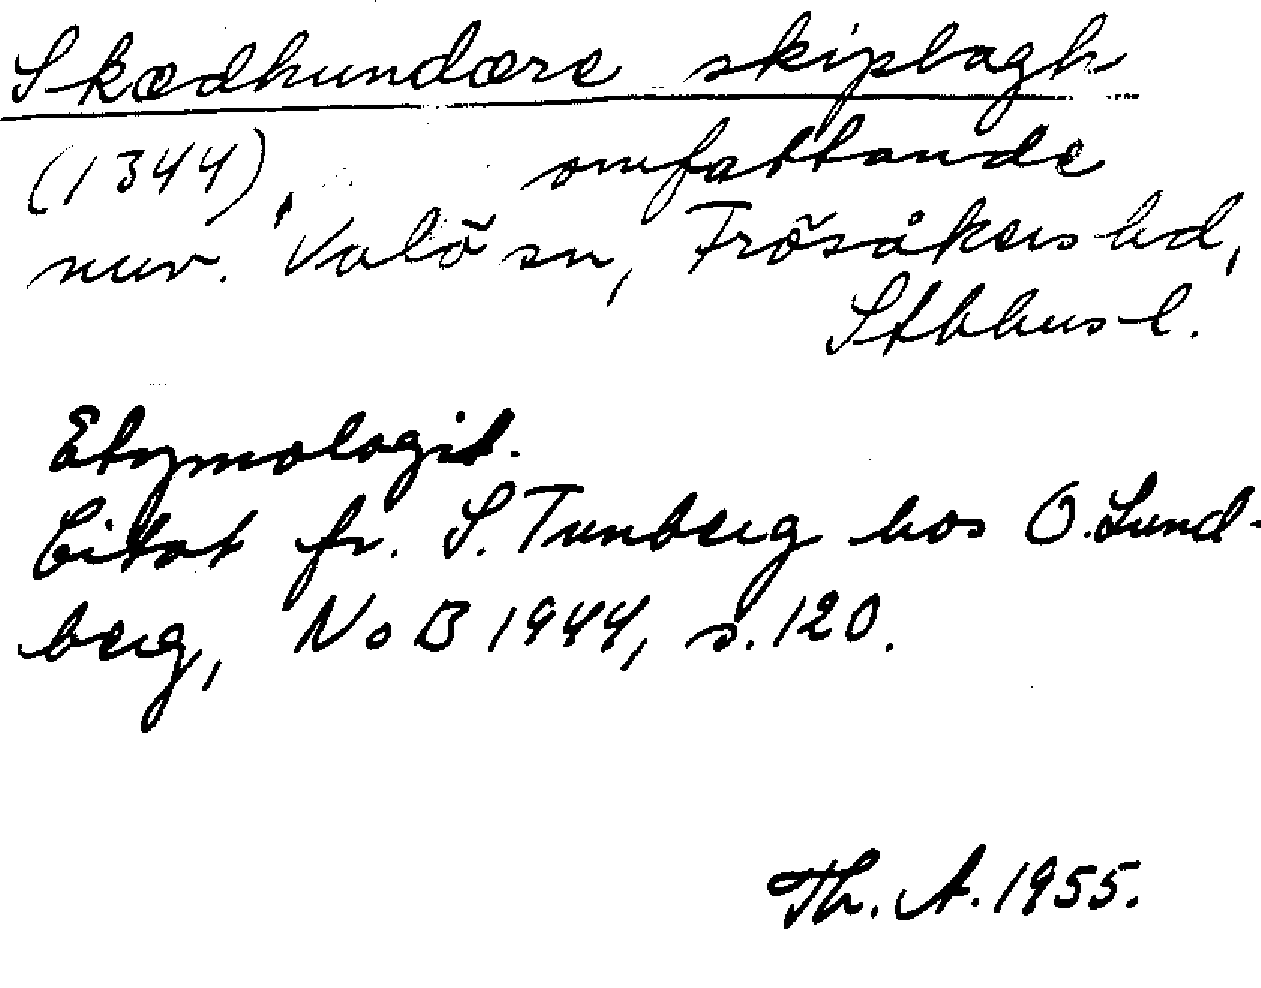 Skædhundære skiplagh
(1344), omfattande
nuv. Valö sn, Frösåkers hd,
Sthlms l.
Etymologi.
Citat fr. S. Tunberg hos O. Lund-
berg, NoB 1944, s. 120.
Th. A. 1955.